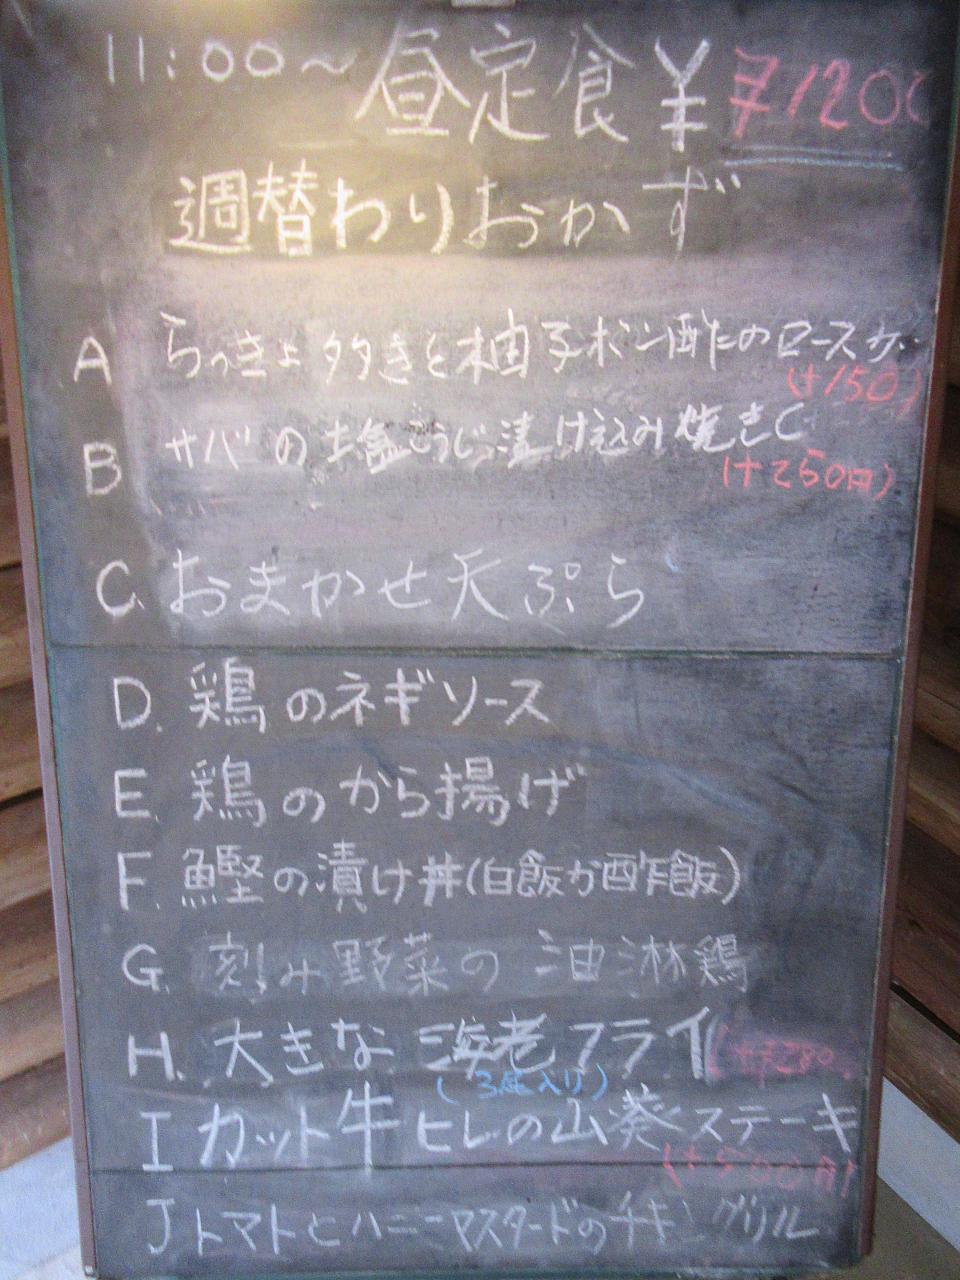 11:00〜昼定食¥1200
週替わりおかず
A らっきょ 多きと柚子ポン酢のロースカ
(+150)
B サバの塩こうじ漬け込み焼き
(+250円)
C. おまかせ天ぷら
D. 鶏のネギソース
E. 鶏のから揚げ
F. 鰹の漬け丼(白飯か酢飯)
G. 刻み野菜の油淋鶏
H. 大きな海老フライ
(3匹入り)
I カット牛ヒレの山葵ステーキ
(+500円)
J トマトとハニーマスタードのチキングリル